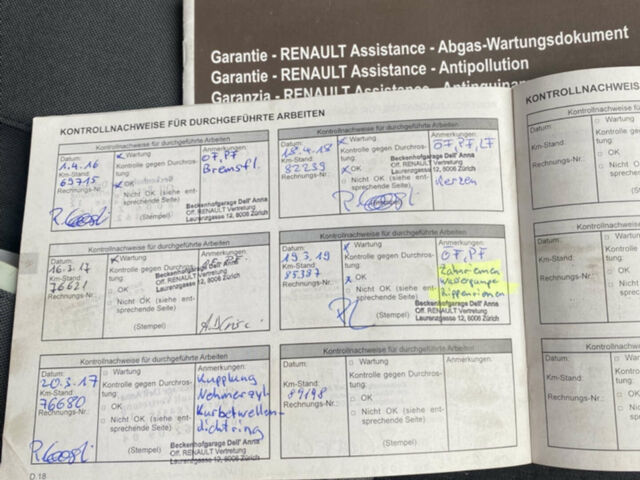 Garantie - RENAULT Assistance - Abgas-Wartungsdokument
Garantie - RENAULT Assistance - Antipollution
Garanzia - RENAULT Assistance - Antinquinam
KONTROLLNACHWEISE FÜR DURCHGEFÜHRTE ARBEITEN
Kontrollnachweise für durchgeführte Arbeiten
Datum:
1.4.16
Km-Stand:
69715
Rechnungs-Nr.:
x Wartung
Kontrolle gegen Durchros-
tung:
x OK
□ Nicht OK (siehe ent-
sprechende Seite)
(Stempel)
Anmerkungen:
OF, PF
Bremsfl.
Beckenhofgarage Dell' Anna
Off. RENAULT Vertretung
Laurenzgasse 12, 8006 Zürich
Kontrollnachweise für durchgeführte Arbeiten
Datum:
18.4.18
Km-Stand:
82239
Rechnungs-Nr.:
x Wartung
Kontrolle gegen Durchros-
tung:
x OK
□ Nicht OK (siehe ent-
sprechende Seite)
(Stempel)
Anmerkungen:
OF, PF, LF
Beckenhofgarage Dell' Anna
Off. RENAULT Vertretung
Laurenzgasse 12, 8006 Zürich
Kerzen
Kontrollnachweise für durchgeführte Arbeiten
Datum:
16.3.17
Km-Stand:
76621
Rechnungs-Nr.:
x Wartung
Kontrolle gegen Durchros-
tung:
□ OK
□ Nicht OK (siehe ent-
sprechende Seite)
(Stempel)
Anmerkungen:
Beckenhofgarage Dell' Anna
Off. RENAULT Vertretung
Laurenzgasse 12, 8006 Zürich
Kontrollnachweise für durchgeführte Arbeiten
Datum:
19.3.19
Km-Stand:
85387
Rechnungs-Nr.:
x Wartung
Kontrolle gegen Durchros-
tung:
x OK
□ Nicht OK (siehe ent-
sprechende Seite)
(Stempel)
Anmerkungen:
OF, PF
Zahnriemen
Wasserpumpe
Rippenriemen
Beckenhofgarage Dell' Anna
Off. RENAULT Vertretung
Laurenzgasse 12, 8006 Zürich
Kontrollnachweise für durchgeführte Arbeiten
Datum:
20.3.17
Km-Stand:
76680
Rechnungs-Nr.:
□ Wartung
Kontrolle gegen Durchros-
tung:
□ OK
□ Nicht OK (siehe ent-
sprechende Seite)
(Stempel)
Anmerkungen:
Kupplung
Nehmerzyl.
Kurbelwellen-
dichtring
Beckenhofgarage Dell' Anna
Off. RENAULT Vertretung
Laurenzgasse 12, 8006 Zürich
Kontrollnachweise für durchgeführte Arbeiten
Datum:
Km-Stand:
89198
Rechnungs-Nr.:
□ Wartung
Kontrolle gegen Durchros-
tung:
□ OK
□ Nicht OK (siehe ent-
sprechende Seite)
(Stempel)
Anmerkungen:
D.18
KONTROLLNACHWEIS
Kontrollnachweise
Datum:
Km-Stand:
Rechnungs-Nr.:
Kontrollnachweise
Datum:
Km-Stand:
Rechnungs-Nr.:
Kontrollnachweise
Datum:
Km-Stand:
Rechnungs-Nr.: